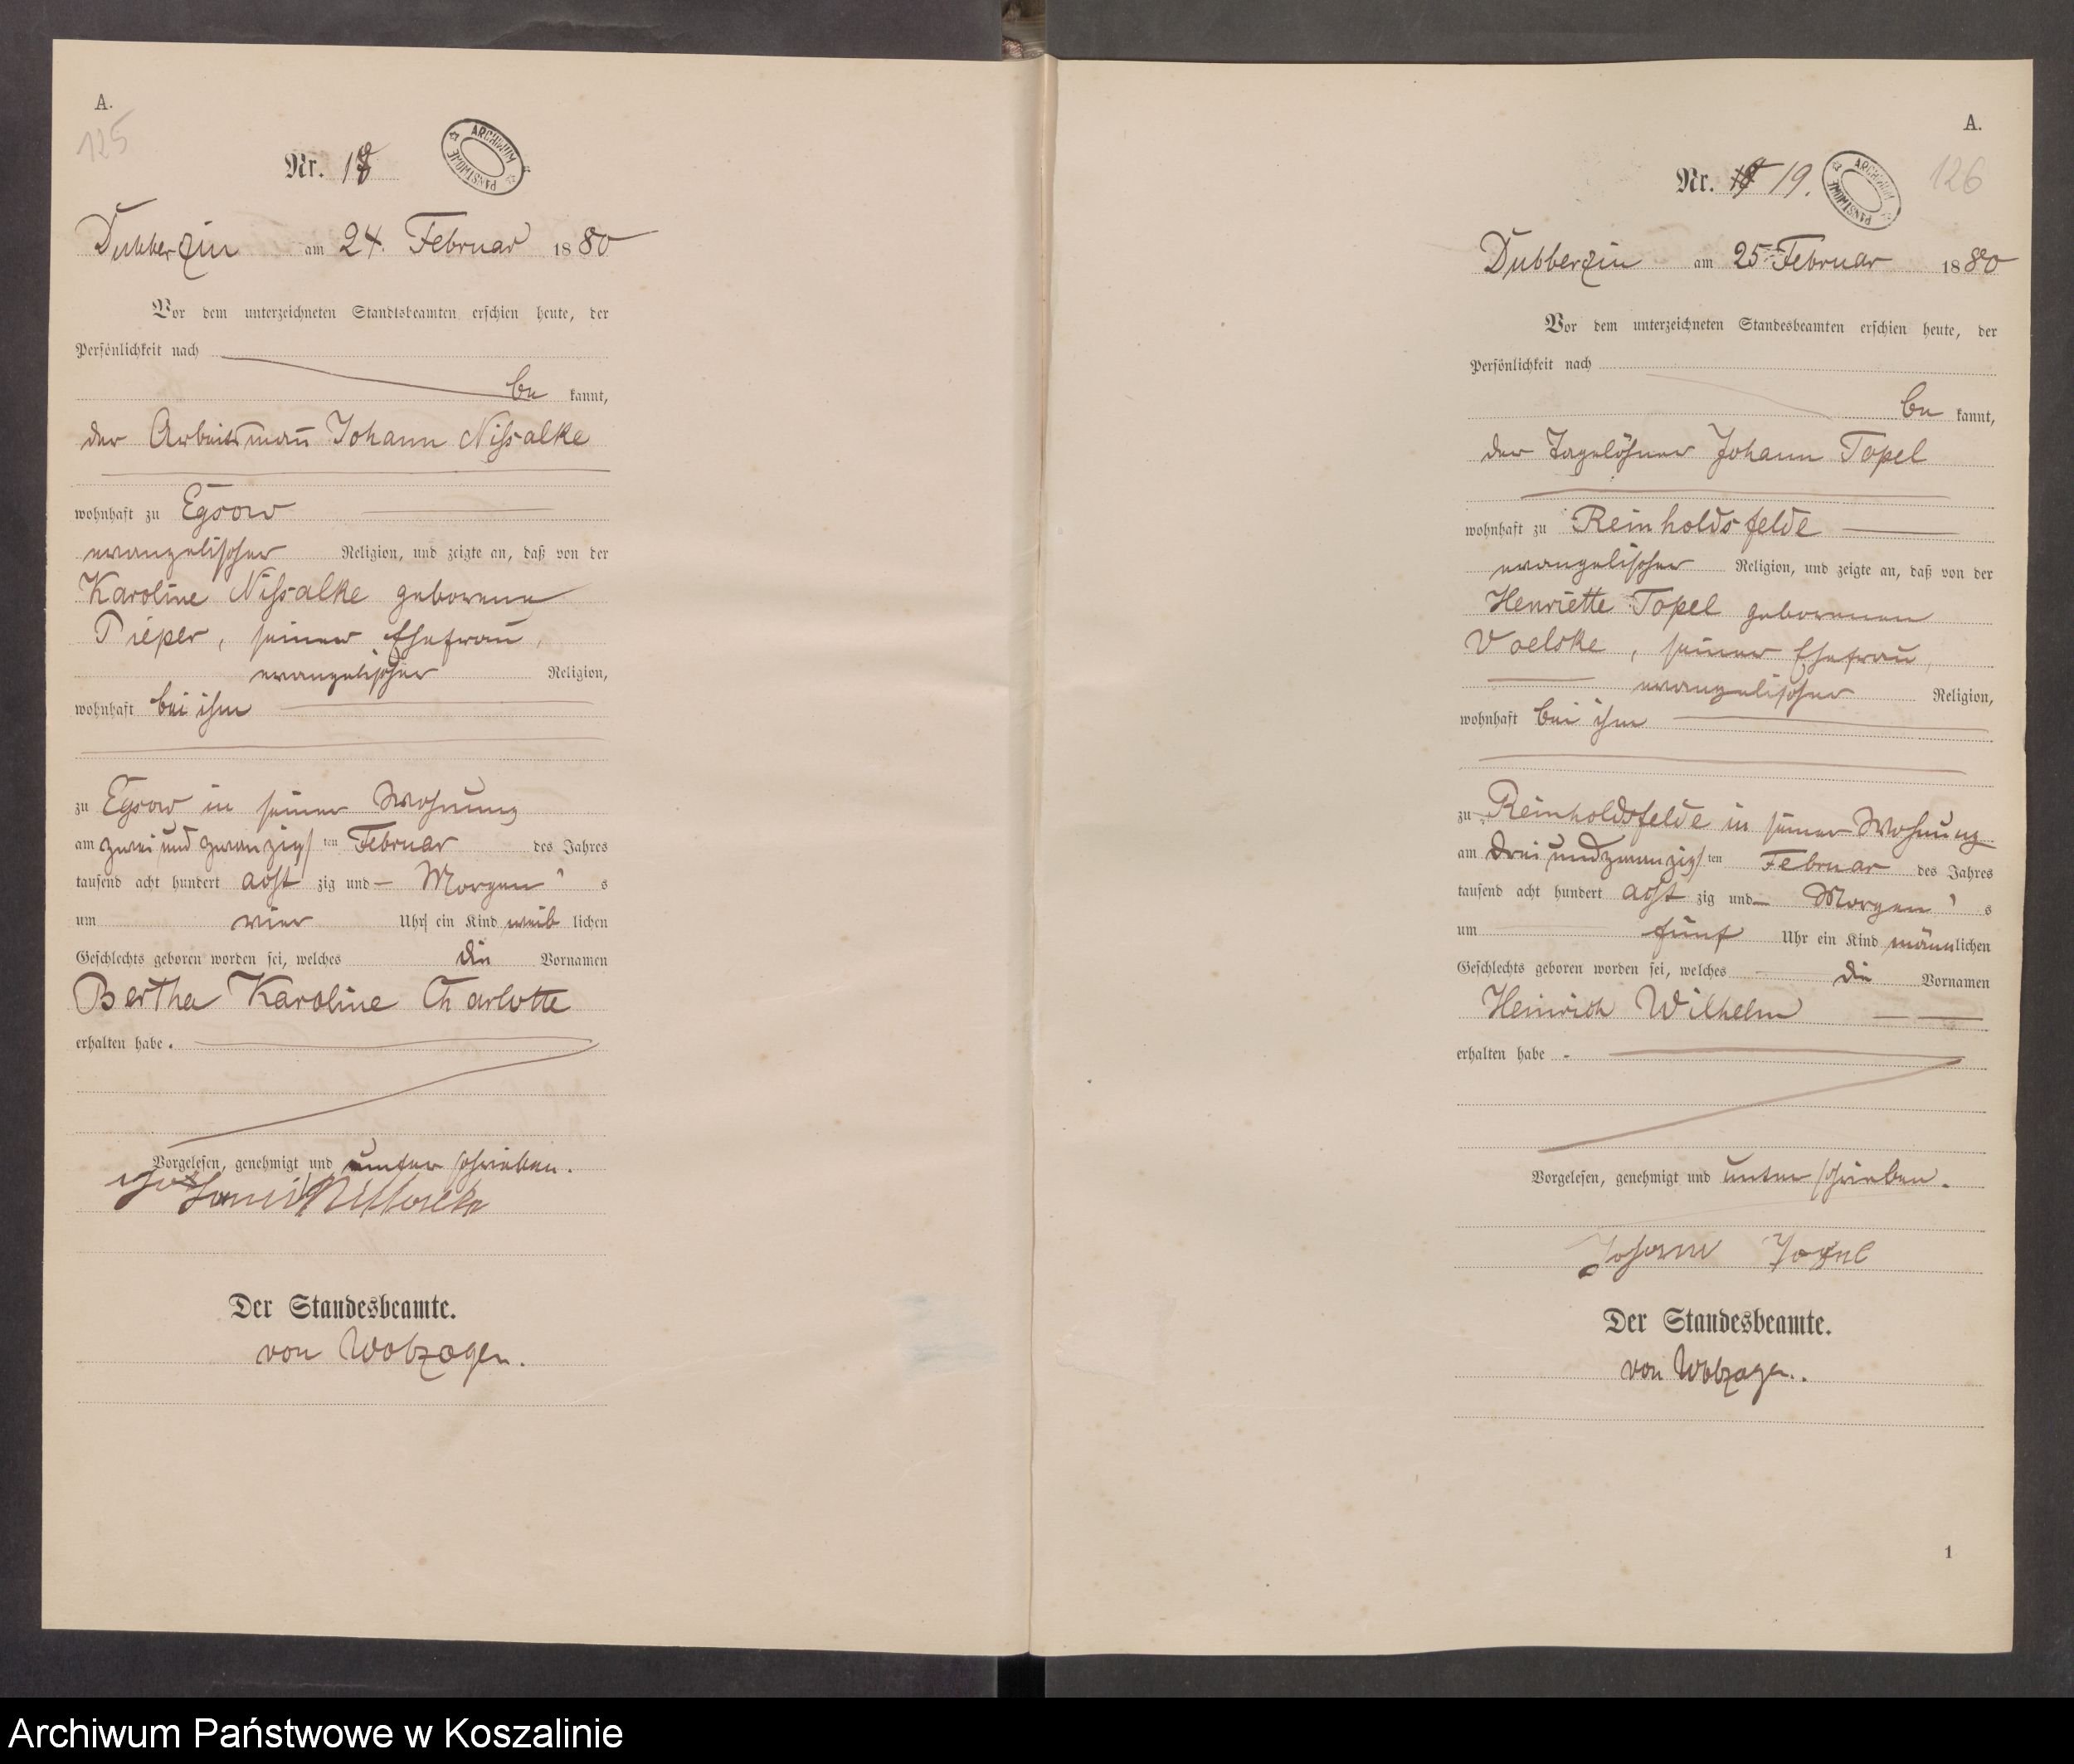 A.
125
Nr. 18
ARCHIWUM PAŃSTWOWE
Dubberzin am 24. Februar 1880
Vor dem unterzeichneten Standesbeamten erschien heute, der
Persönlichkeit nach
be kannt,
der Arbeitsmann Johann Nissalke
wohnhaft zu Egsow
evangelischer Religion, und zeigte an, daß von der
Karoline Nissalke geborene
Pieper, seiner Ehefrau,
evangelischer Religion,
wohnhaft bei ihm
zu Egsow in seiner Wohnung
am zwei und zwanzigsten Februar des Jahres
tausend acht hundert acht zig und – Morgens
um vier Uhr ein Kind weib lichen
Geschlechts geboren worden sei, welches die Vornamen
Bertha Karoline Charlotte
erhalten habe.
Vorgelesen, genehmigt und unterschrieben.
Johann
Der Standesbeamte.
von Wolzogen.
A.
126
Nr. 18 19.
ARCHIWUM PAŃSTWOWE
Dubberzin am 25. Februar 1880
Vor dem unterzeichneten Standesbeamten erschien heute, der
Persönlichkeit nach
be kannt,
der Tagelöhner Johann Topel
wohnhaft zu Reinholdsfelde
evangelischer Religion, und zeigte an, daß von der
Henriette Topel geborenen
Voelske, seiner Ehefrau,
evangelischer Religion,
wohnhaft bei ihm
zu Reinholdsfelde in seiner Wohnung
am drei und zwanzigsten Februar des Jahres
tausend acht hundert acht zig und – Morgens
um fünf Uhr ein Kind männlichen
Geschlechts geboren worden sei, welches die Vornamen
Heinrich Wilhelm
erhalten habe.
Vorgelesen, genehmigt und unterschrieben.
Johann Topel
Der Standesbeamte.
von Wolzogen.
1
Archiwum Państwowe w Koszalinie